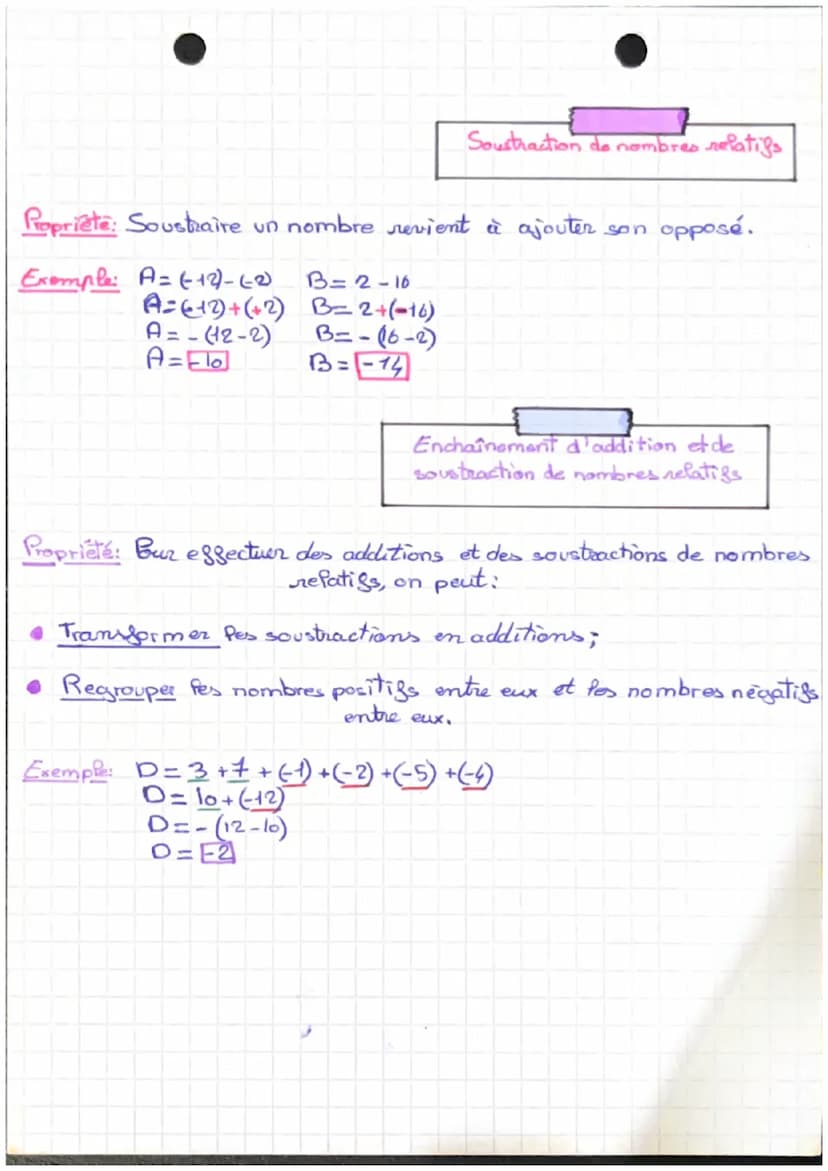 Soustraction de nombres relatifs
Propriété: Soustraire un nombre revient à ajouter son opposé.
Exemple: A = (-12)-(-2) B = 2 - 16
A = (-12)+(+2) B = 2+(-16)
A = - (12-2) B = - (16-2)
A = -10 B = -14
Enchaînement d'addition et de
soustraction de nombres relatifs
Propriété: Pour effectuer des additions et des soustractions de nombres
relatifs, on peut:
• Transformer les soustractions en additions;
• Regrouper les nombres positifs entre eux et les nombres négatifs
entre eux.
Exemple: D = 3 +7 + (-1) +(-2) +(-5) +(-4)
D = 10+(-12)
D = - (12-10)
D = -2